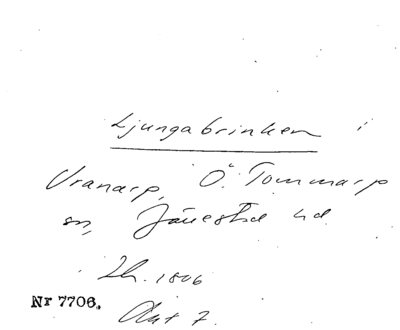 Ljungabrinken i
Vranarp, Ö. Tommarp
sn, Järrestad hd
Lh. 1806
Nr 7706.
Akt 7.